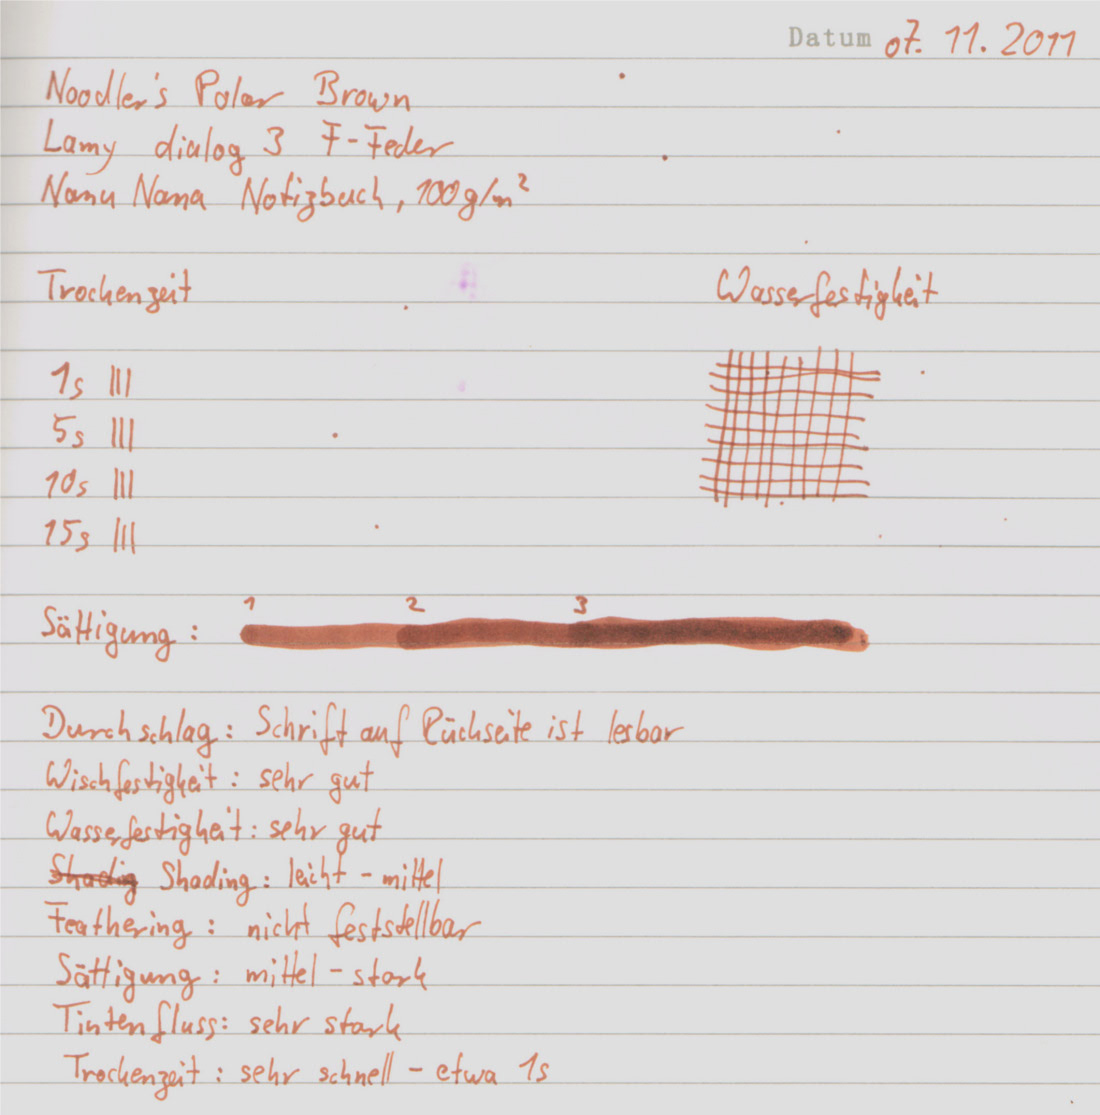 Datum 07. 11. 2011
Noodler's Polar Brown
Lamy dialog 3 F-Feder
Nanu Nana Notizbuch, 100g/m²
Trockenzeit
Wasserfestigkeit
1s |||
5s |||
10s |||
15s |||
1 2 3
Sättigung:
Durchschlag: Schrift auf Rückseite ist lesbar
Wischfestigkeit: sehr gut
Wasserfestigkeit: sehr gut
Shadig Shading: leicht - mittel
Feathering: nicht feststellbar
Sättigung: mittel - stark
Tintenfluss: sehr stark
Trockenzeit: sehr schnell - etwa 1s